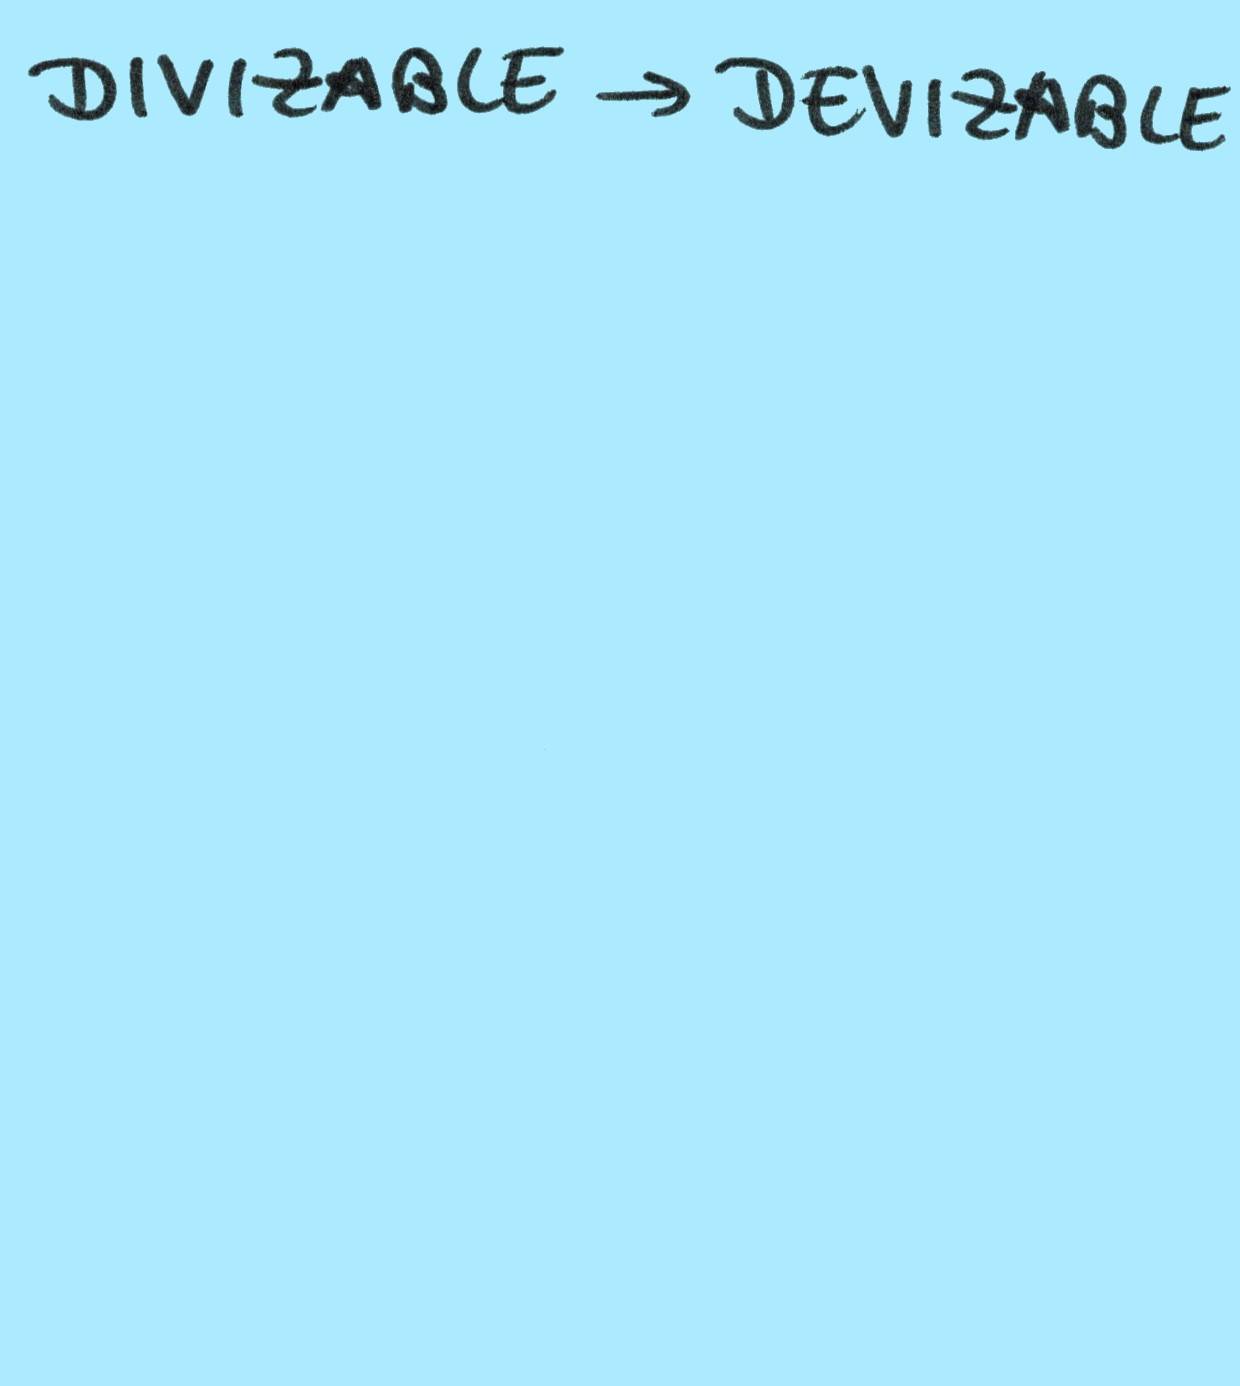 DIVIZABLE → DEVIZABLE